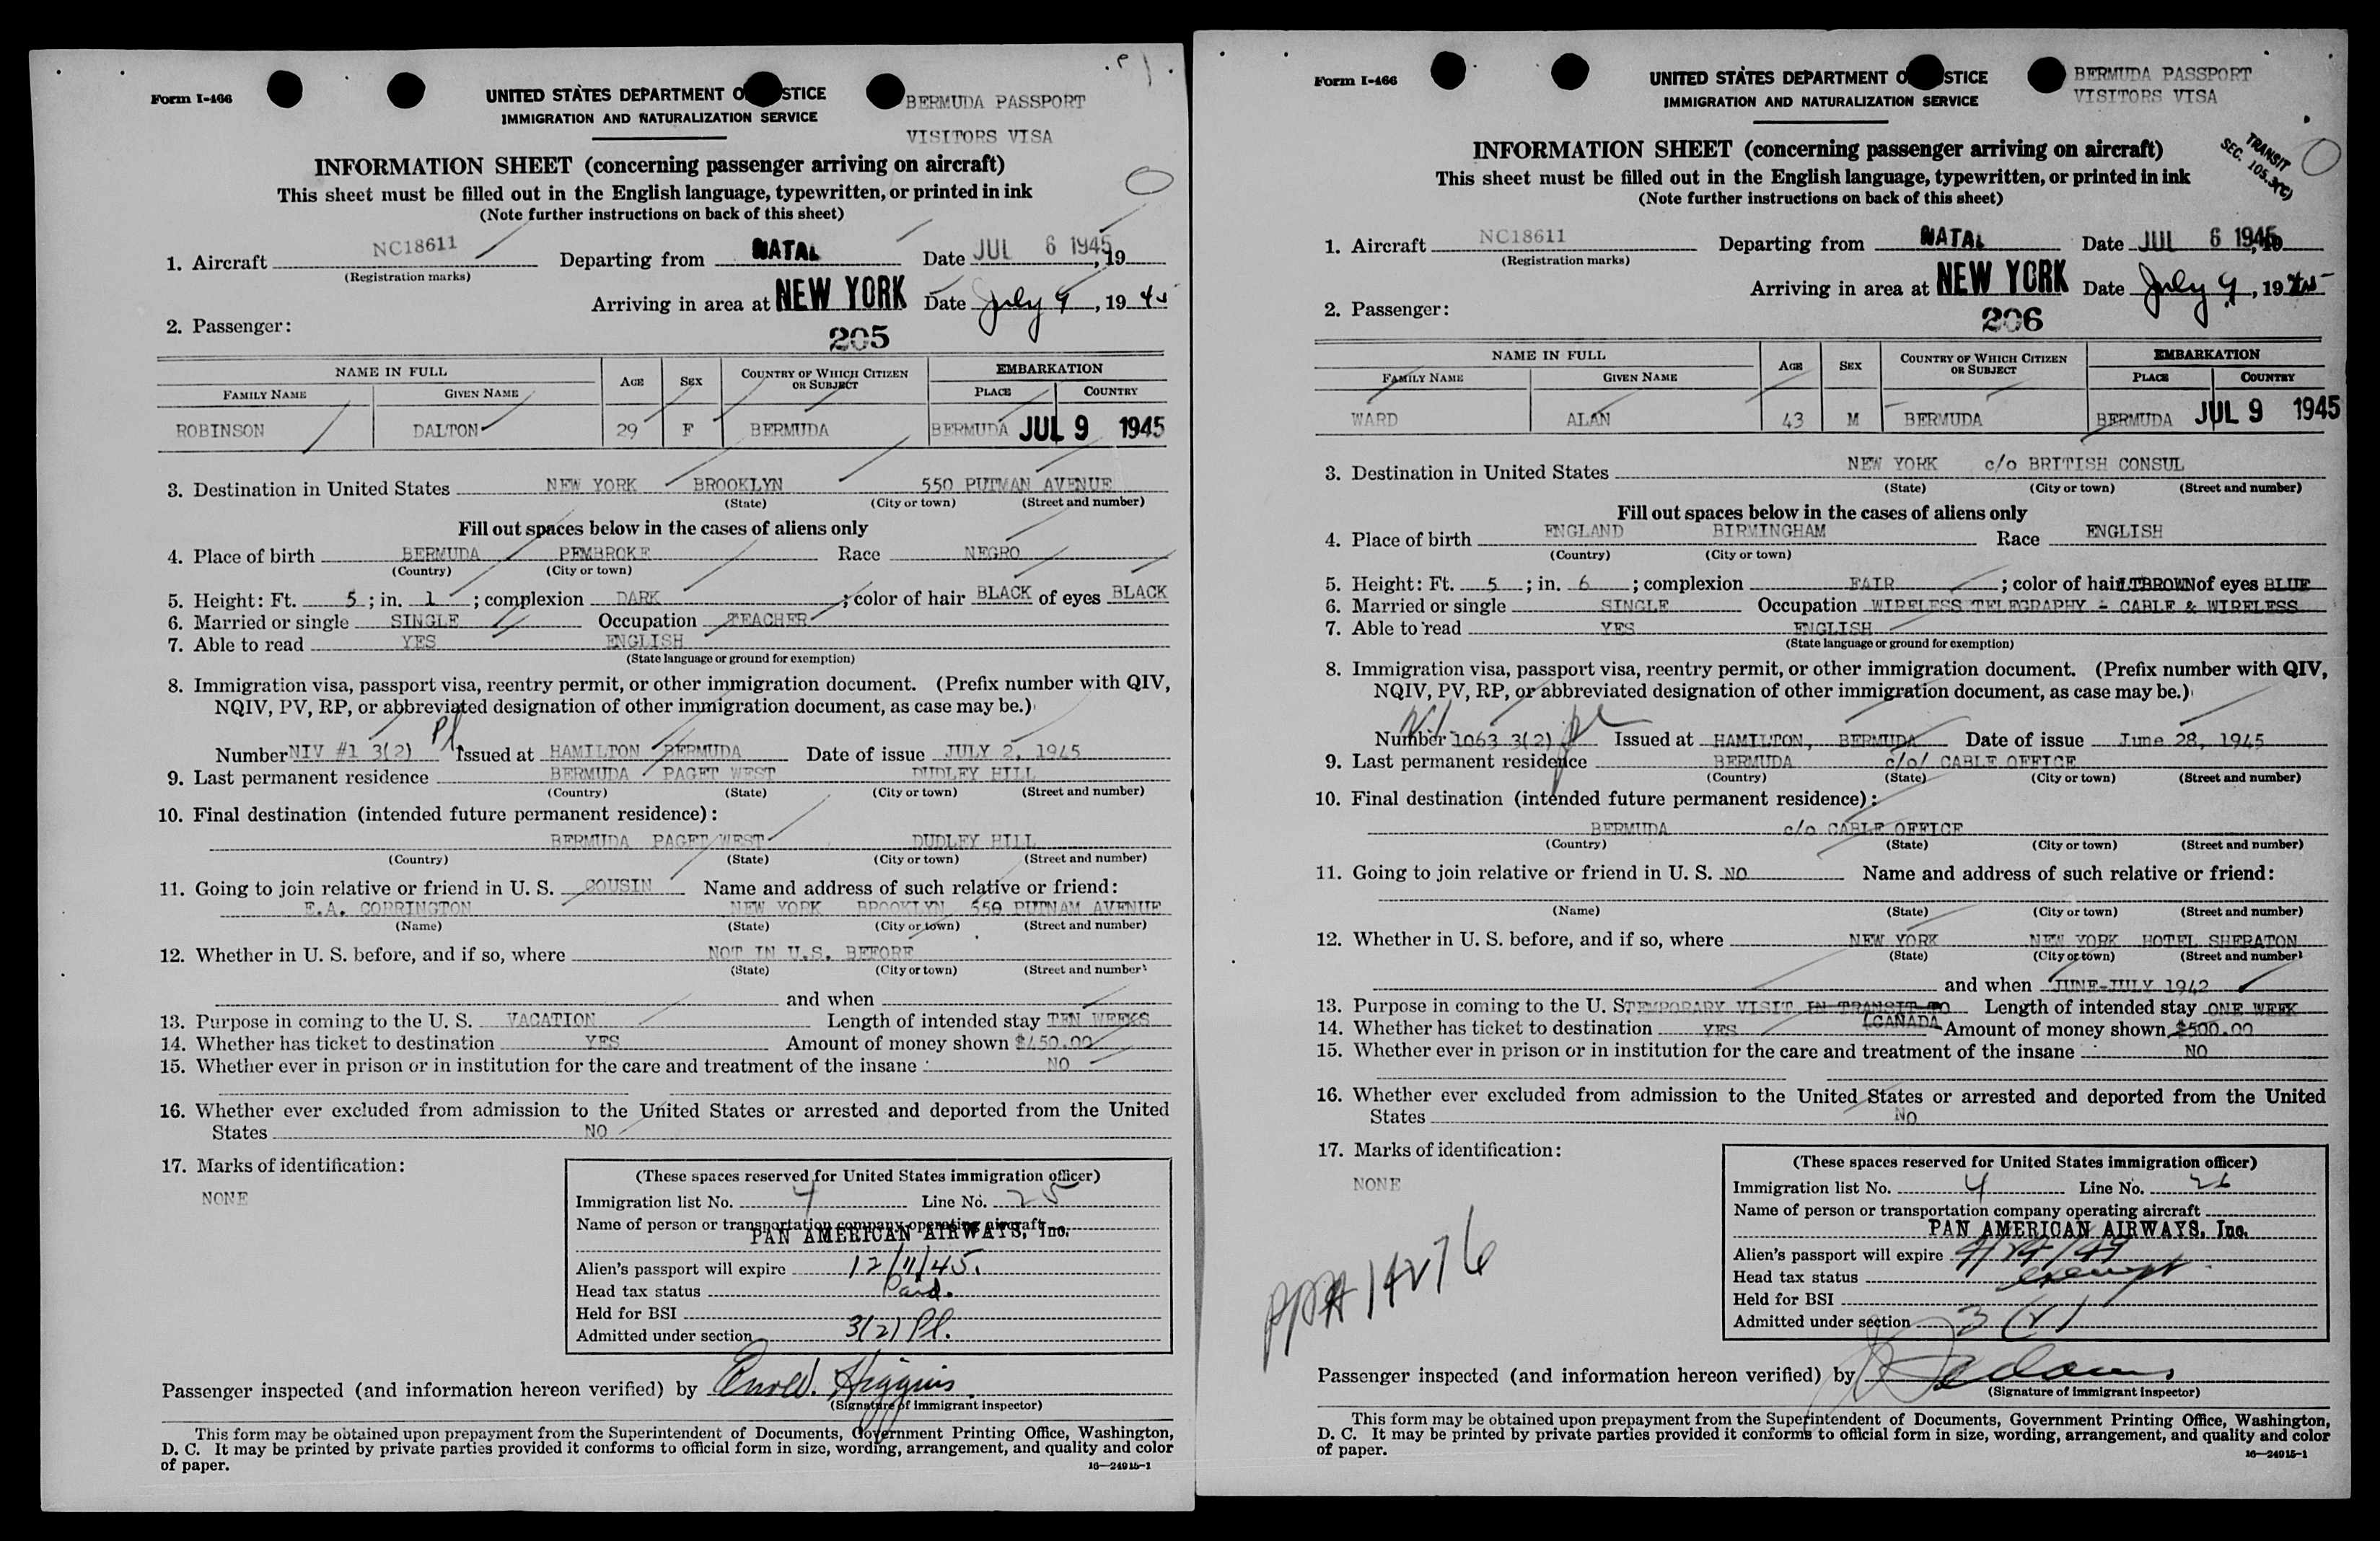 Form I-466
UNITED STATES DEPARTMENT O STICE
IMMIGRATION AND NATURALIZATION SERVICE
BERMUDA PASSPORT
VISITORS VISA
INFORMATION SHEET (concerning passenger arriving on aircraft)
This sheet must be filled out in the English language, typewritten, or printed in ink
(Note further instructions on back of this sheet)
1. Aircraft NC18611 Departing from NATAL Date JUL 6 1945, 19
(Registration marks)
Arriving in area at NEW YORK Date July 9, 1945
2. Passenger:
205
NAME IN FULL AGE SEX COUNTRY OF WHICH CITIZEN OR SUBJECT EMBARKATION
FAMILY NAME GIVEN NAME PLACE COUNTRY
ROBINSON DALTON 29 F BERMUDA BERMUDA JUL 9 1945
3. Destination in United States NEW YORK BROOKLYN 550 PUTMAN AVENUE
(State) (City or town) (Street and number)
Fill out spaces below in the cases of aliens only
4. Place of birth BERMUDA PEMBROKE Race NEGRO
(Country) (City or town)
5. Height: Ft. 5; in. 1; complexion DARK; color of hair BLACK of eyes BLACK
6. Married or single SINGLE Occupation TEACHER
7. Able to read YES ENGLISH
(State language or ground for exemption)
8. Immigration visa, passport visa, reentry permit, or other immigration document. (Prefix number with QIV,
NQIV, PV, RP, or abbreviated designation of other immigration document, as case may be.)
Number NIV #1 3(2) Pl. Issued at HAMILTON BERMUDA Date of issue JULY 2, 1945
9. Last permanent residence BERMUDA PAGET WEST DUDLEY HILL
(Country) (State) (City or town) (Street and number)
10. Final destination (intended future permanent residence):
BERMUDA PAGET WEST DUDLEY HILL
(Country) (State) (City or town) (Street and number)
11. Going to join relative or friend in U. S. COUSIN Name and address of such relative or friend:
E.A. CORRINGTON NEW YORK BROOKLYN 550 PUTNAM AVENUE
(Name) (State) (City or town) (Street and number)
12. Whether in U. S. before, and if so, where NOT IN U.S. BEFORE
(State) (City or town) (Street and number)
and when
13. Purpose in coming to the U. S. VACATION Length of intended stay TEN WEEKS
14. Whether has ticket to destination YES Amount of money shown $450.00
15. Whether ever in prison or in institution for the care and treatment of the insane NO
16. Whether ever excluded from admission to the United States or arrested and deported from the United
States NO
17. Marks of identification:
NONE
(These spaces reserved for United States immigration officer)
Immigration list No. 4 Line No. 25
Name of person or transportation company operating aircraft
PAN AMERICAN AIRWAYS, Inc.
Alien's passport will expire 12/11/45.
Head tax status Paid.
Held for BSI
Admitted under section 3(2) Pl.
Passenger inspected (and information hereon verified) by Higgins
(Signature of immigrant inspector)
This form may be obtained upon prepayment from the Superintendent of Documents, Government Printing Office, Washington,
D. C. It may be printed by private parties provided it conforms to official form in size, wording, arrangement, and quality and color
of paper.
16—24915-1
Form I-466
UNITED STATES DEPARTMENT O STICE
IMMIGRATION AND NATURALIZATION SERVICE
BERMUDA PASSPORT
VISITORS VISA
TRANSIT
SEC. 105.3(C)
INFORMATION SHEET (concerning passenger arriving on aircraft)
This sheet must be filled out in the English language, typewritten, or printed in ink
(Note further instructions on back of this sheet)
1. Aircraft NC18611 Departing from NATAL Date JUL 6 1945
(Registration marks)
Arriving in area at NEW YORK Date July 9, 1945
2. Passenger:
206
NAME IN FULL AGE SEX COUNTRY OF WHICH CITIZEN OR SUBJECT EMBARKATION
FAMILY NAME GIVEN NAME PLACE COUNTRY
WARD ALAN 43 M BERMUDA BERMUDA JUL 9 1945
3. Destination in United States NEW YORK c/o BRITISH CONSUL
(State) (City or town) (Street and number)
Fill out spaces below in the cases of aliens only
4. Place of birth ENGLAND BIRMINGHAM Race ENGLISH
(Country) (City or town)
5. Height: Ft. 5; in. 6; complexion FAIR; color of hair LTBROWN of eyes BLUE
6. Married or single SINGLE Occupation WIRELESS TELEGRAPHY - CABLE & WIRELESS
7. Able to read YES ENGLISH
(State language or ground for exemption)
8. Immigration visa, passport visa, reentry permit, or other immigration document. (Prefix number with QIV,
NQIV, PV, RP, or abbreviated designation of other immigration document, as case may be.)
Number 1063 3(2) Issued at HAMILTON, BERMUDA Date of issue June 28, 1945
9. Last permanent residence BERMUDA c/o/ CABLE OFFICE
(Country) (State) (City or town) (Street and number)
10. Final destination (intended future permanent residence):
BERMUDA c/o CABLE OFFICE
(Country) (State) (City or town) (Street and number)
11. Going to join relative or friend in U. S. NO Name and address of such relative or friend:
(Name) (State) (City or town) (Street and number)
12. Whether in U. S. before, and if so, where NEW YORK NEW YORK HOTEL SHERATON
(State) (City or town) (Street and number)
and when JUNE-JULY 1942
13. Purpose in coming to the U. S. TEMPORARY VISIT IN TRANSIT TO Length of intended stay ONE WEEK
14. Whether has ticket to destination YES (CANADA Amount of money shown $500.00
15. Whether ever in prison or in institution for the care and treatment of the insane NO
16. Whether ever excluded from admission to the United States or arrested and deported from the United
States NO
17. Marks of identification:
NONE
(These spaces reserved for United States immigration officer)
Immigration list No. 4 Line No. 26
Name of person or transportation company operating aircraft
PAN AMERICAN AIRWAYS, Inc.
Alien's passport will expire
Head tax status exempt
Held for BSI
Admitted under section 3(2)
Passenger inspected (and information hereon verified) by
(Signature of immigrant inspector)
This form may be obtained upon prepayment from the Superintendent of Documents, Government Printing Office, Washington,
D. C. It may be printed by private parties provided it conforms to official form in size, wording, arrangement, and quality and color
of paper.
16—24915-1